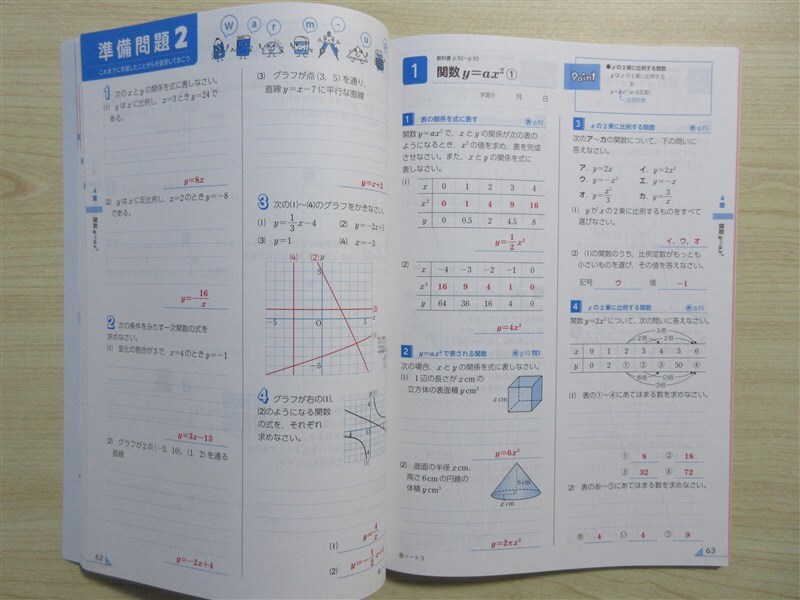 準備問題2
これまでに学習したことがらを復習しておこう
Warm-u
1 次のxとyの関係を式に表しなさい。
(1) yはxに比例し，x=3のときy=24で
ある。
y=8x
(2) yはxに反比例し，x=2のときy=-8
である。
y=-16/x
2 次の条件をみたす一次関数の式を
求めなさい。
(1) 変化の割合が3で，x=4のときy=-1
y=3x-13
(2) グラフが2点(-3, 10)，(1, 2)を通る
直線
y=-2x+4
62
4章
(3) グラフが点(3, 5)を通り，
直線y=x-7に平行な直線
y=x+2
3 次の(1)~(4)のグラフをかきなさい。
(1) y=1/3x-4
(2) y=-2x+5
(3) y=1
(4) x=-3
(4)
(2) y
5
-5
O
5
-5
4 グラフが右の(1)，
(2)のようになる関数
の式を，それぞれ
求めなさい。
(1) y=4/x
(2)
教科書 p.92~p.93
1 関数 y=ax²①
学習日 月 日
Point
●xの2乗に比例する関数
1 表の関係を式に表す
関数y=ax²で，xとyの関係が次の表の
ようになるとき，x²の値を求め，表を完成
させなさい。また，xとyの関係を式に
表しなさい。
(1)
x 0 1 2 3 4
x² 0 1 4 9 16
y 0 0.5 2 4.5 8
y=1/2x²
(2)
x -4 -3 -2 -1 0
x² 16 9 4 1 0
y 64 36 16 4 0
y=4x²
2 y=ax²で表される関数 p.93 問1
次の場合，xとyの関係を式に表しなさい。
(1) 1辺の長さがx cmの
立方体の表面積y cm²
x cm
y=6x²
(2) 底面の半径x cm，
高さ6cmの円錐の
体積y cm³
6cm
x cm
y=2πx²
ノート3
3 xの2乗に比例する関数 p.93
次のア~カの関数について，下の問いに
答えなさい。
ア y=2x イ y=2x²
ウ y=-x² エ y=-x
オ y=x²/3 カ y=3/x
(1) yがxの2乗に比例するものをすべて
選びなさい。
イ，ウ，オ
(2) (1)の関数のうち，比例定数がもっとも
小さいものを選び，その値を答えなさい。
記号 ウ 値 -1
4 xの2乗に比例する関数 p.93
関数y=2x²について，次の問いに答えなさい。
x 0 1 2 3 4 5 6
y 0 2 ① ② ③ 50 ④
(1) 表の①~④にあてはまる数を求めなさい。
① 8 ② 18
③ 32 ④ 72
(2) 表のあ~うにあてはまる数を求めなさい。
あ 4 い 4 う 9
63
4章